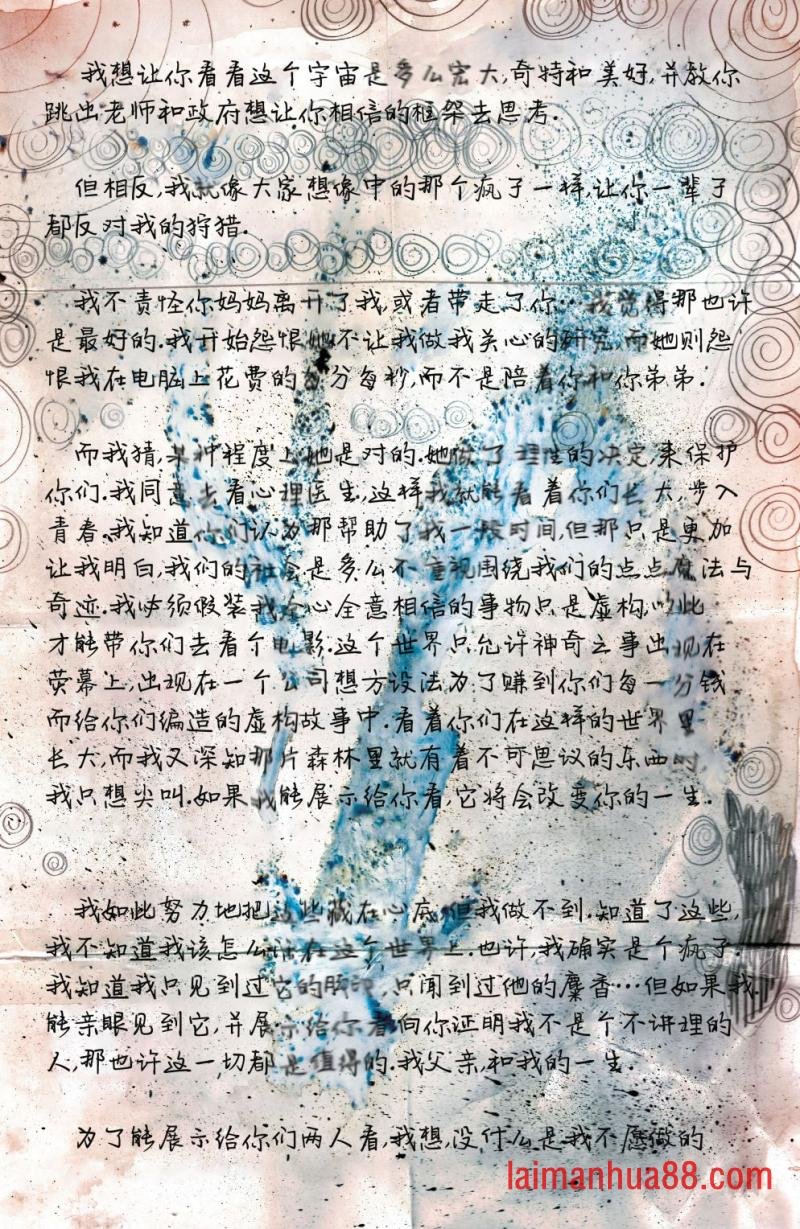 我想让你看看这个宇宙是多么宏大,奇特和美好,并教你
跳出老师和政府想让你相信的框架去思考.
但相反,我就像大家想像中的那个疯子一样,让你一辈子
都反对我的狩猎.
我不责怪你妈妈离开了我,或者带走了你…我觉得那也许
是最好的.我开始怨恨她不让我做我关心的研究,而她则怨
恨我在电脑上花费的每分每秒,而不是陪着你和你弟弟.
而我猜,某种程度上她是对的.她做了理性的决定,来保护
你们.我同意去看心理医生,这样我就能看着你们长大,步入
青春.我知道你们认为那帮助了我一段时间,但那只是更加
让我明白,我们的社会是多么不重视围绕我们的点点魔法与
奇迹.我必须假装我全心全意相信的事物只是虚构,以此
才能带你们去看个电影.这个世界只允许神奇之事出现在
荧幕上,出现在一个公司想方设法为了赚到你们每一分钱
而给你们编造的虚构故事中.看着你们在这样的世界里
长大,而我又深知那片森林里就有着不可思议的东西时,
我只想尖叫.如果我能展示给你看,它将会改变你的一生.
我如此努力地把这些藏在心底,但我做不到.知道了这些,
我不知道我该怎么活在这个世界上.也许,我确实是个疯子.
我知道我只见到过它的脚印,只闻到过他的麝香…但如果我
能亲眼见到它,并展示给你看,向你证明我不是个不讲理的
人,那也许这一切都是值得的.我父亲,和我的一生.
为了能展示给你们两人看,我想,没什么是我不愿做的
laimanhua88.com